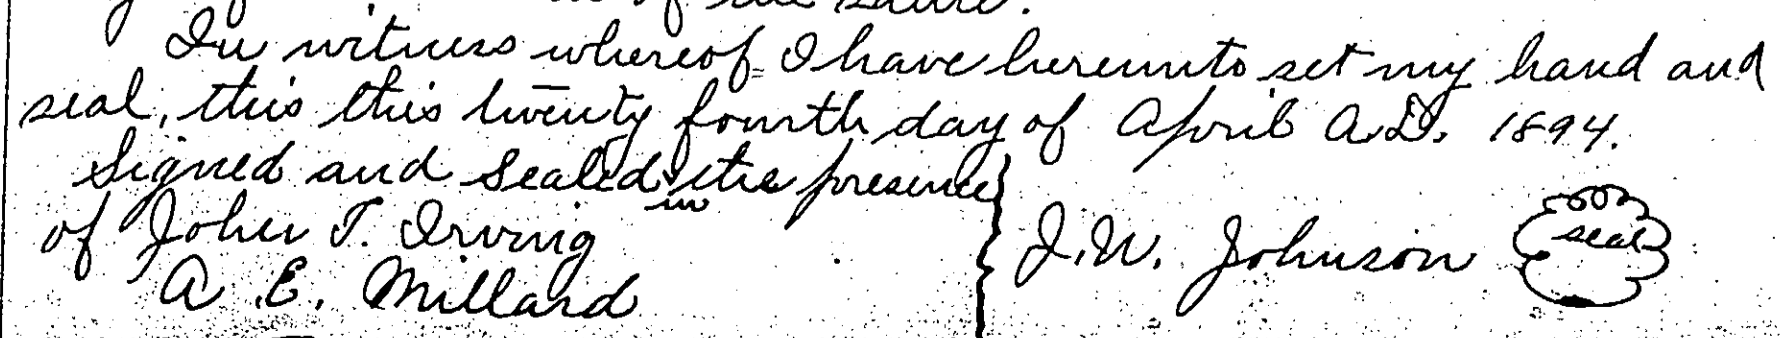 of the same.
In witness whereof I have hereunto set my hand and
seal, this this twenty fourth day of April A.D. 1894.
Signed and Sealed in the presence
of John T. Irving
J. W. Johnson seal
A. E. Millard